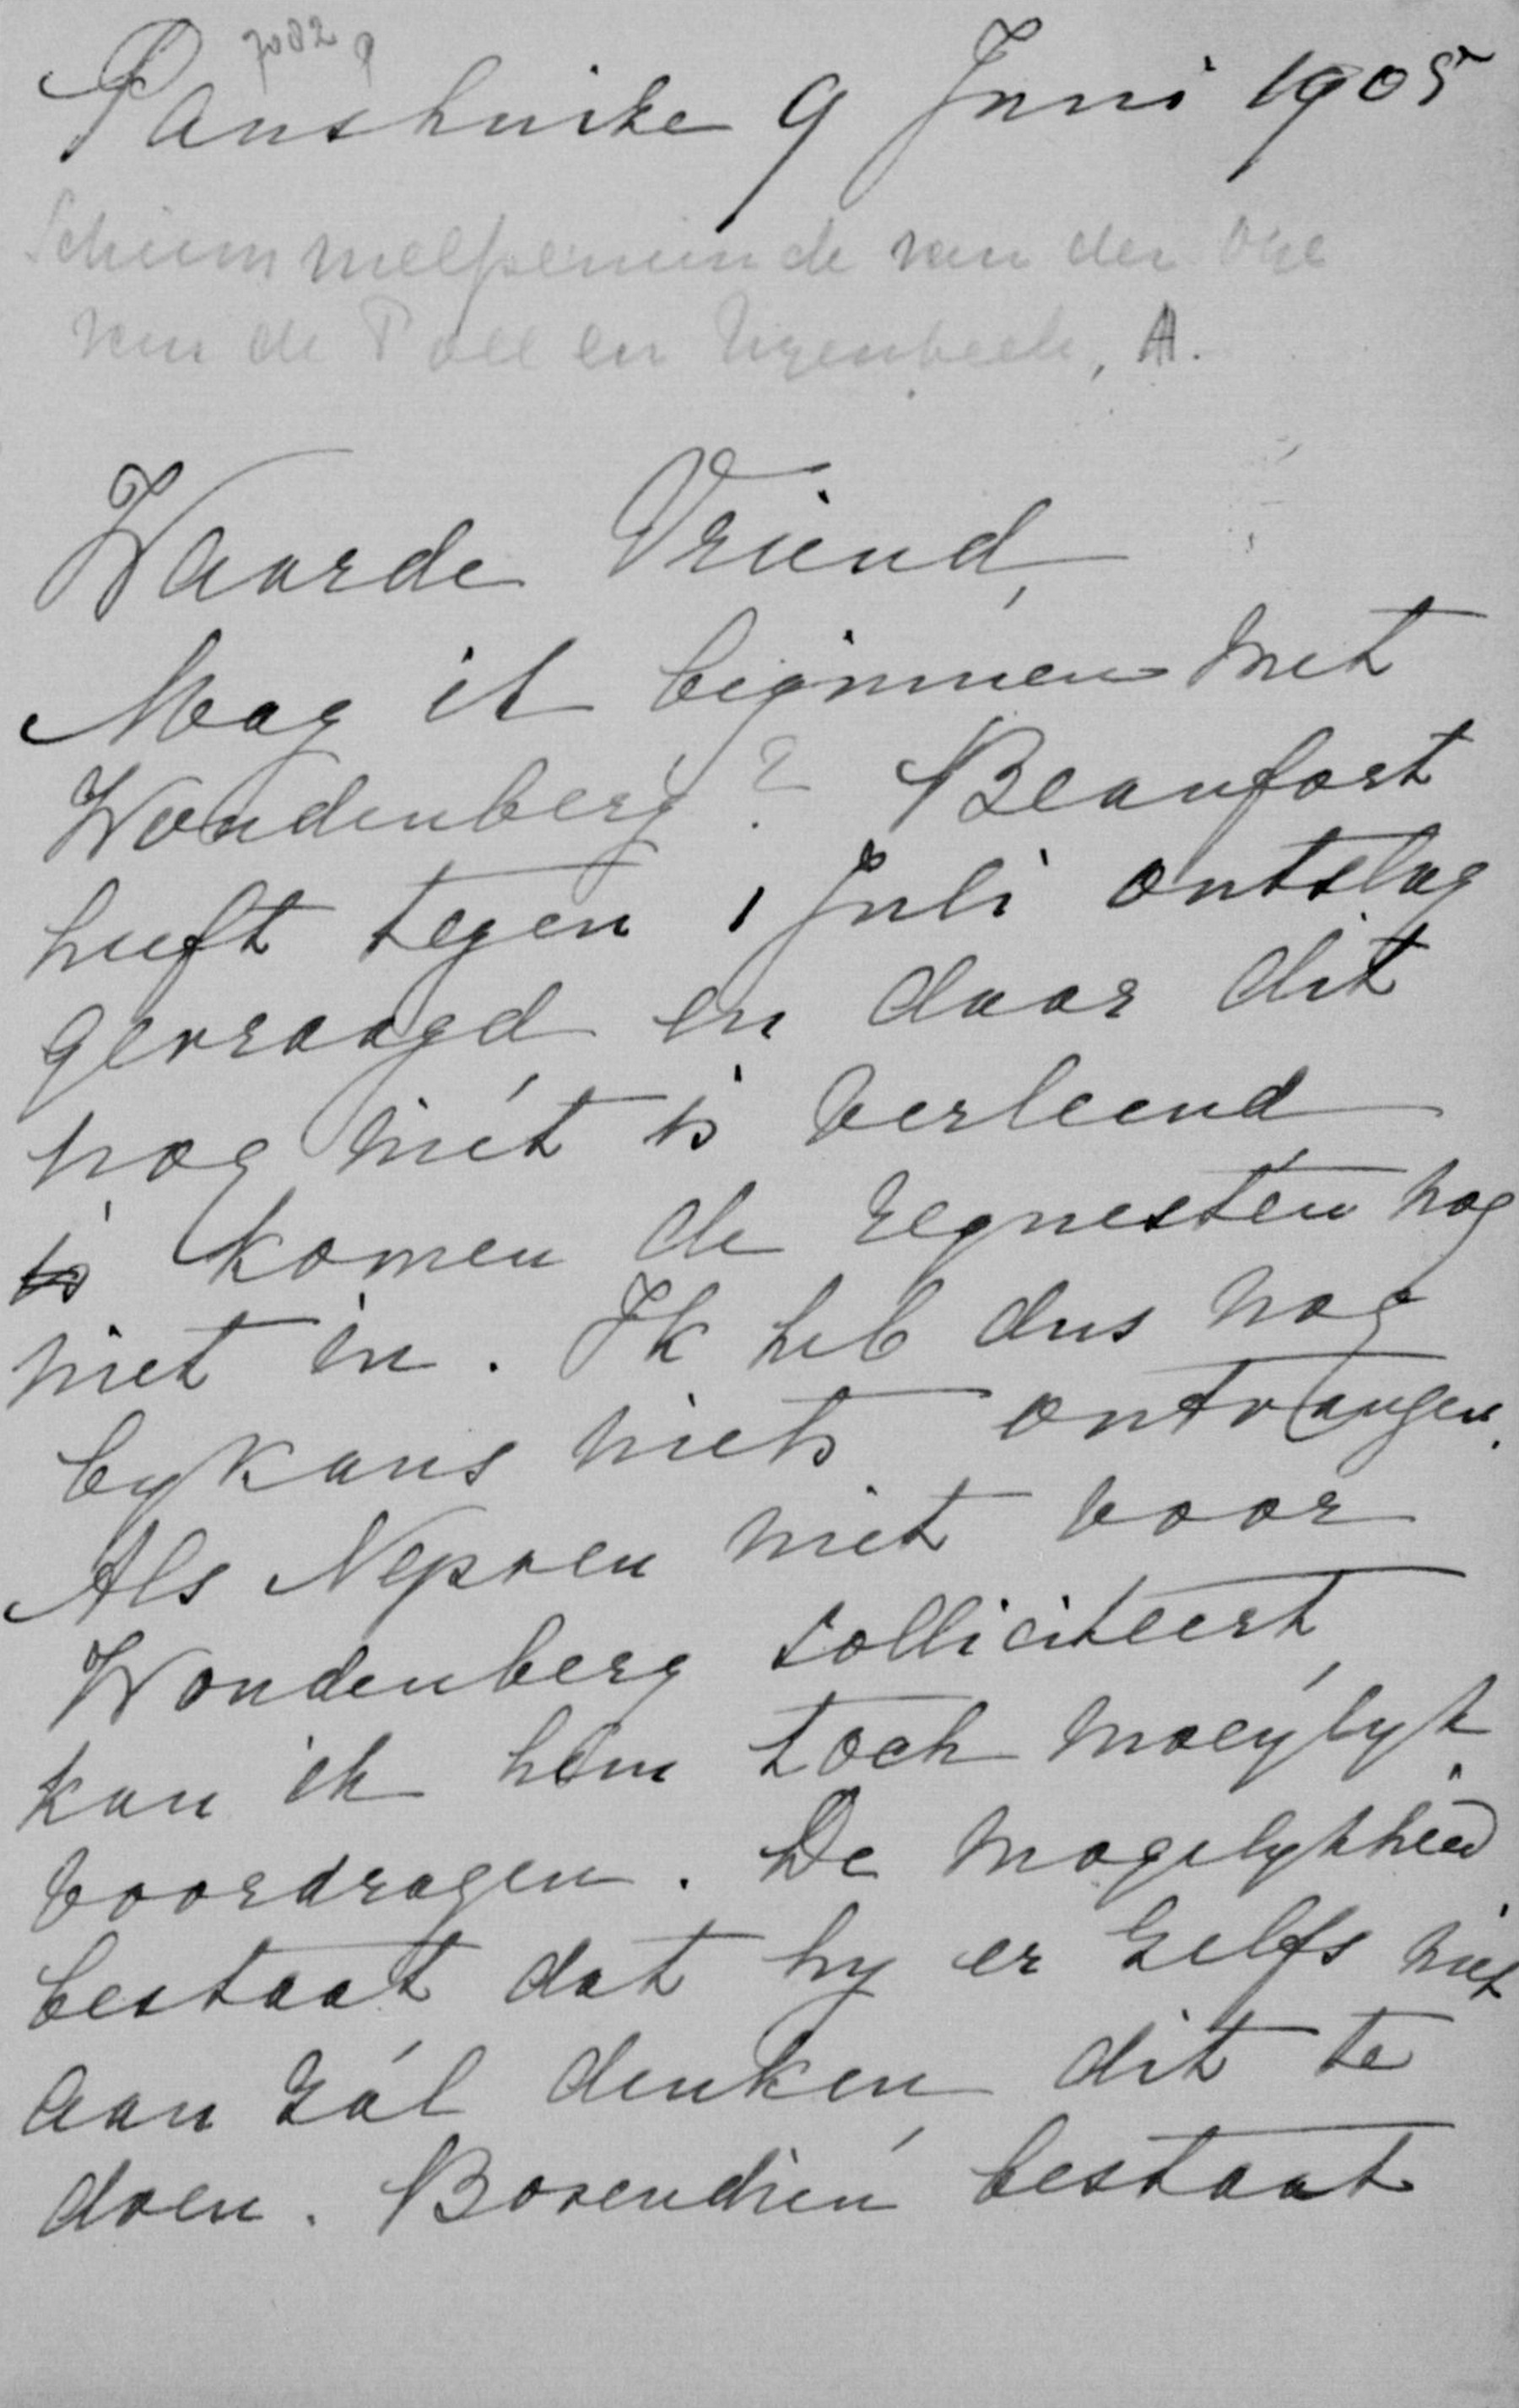 7082 a
Panshuize 9 Juni 1905
Schimmelpenninck van der Oye
van de Poll en Nyenbeek, A.
Waarde Vriend,
Mag ik beginnen met
Woudenberg? Beaufort
heeft tegen 1 Juli ontslag
gevraagd en daar dit
nog niet is verleend,
is komen de requesten nog
niet in. Ik heb dus nog
bykans niets ontvangen.
Als Nepveu niet voor
Woudenberg solliciteert,
kan ik hem toch moeylyk
voordragen. De mogelykheid
bestaat dat hy er zelfs niet
aan zál denken, dit te
doen. Bovendien bestaat